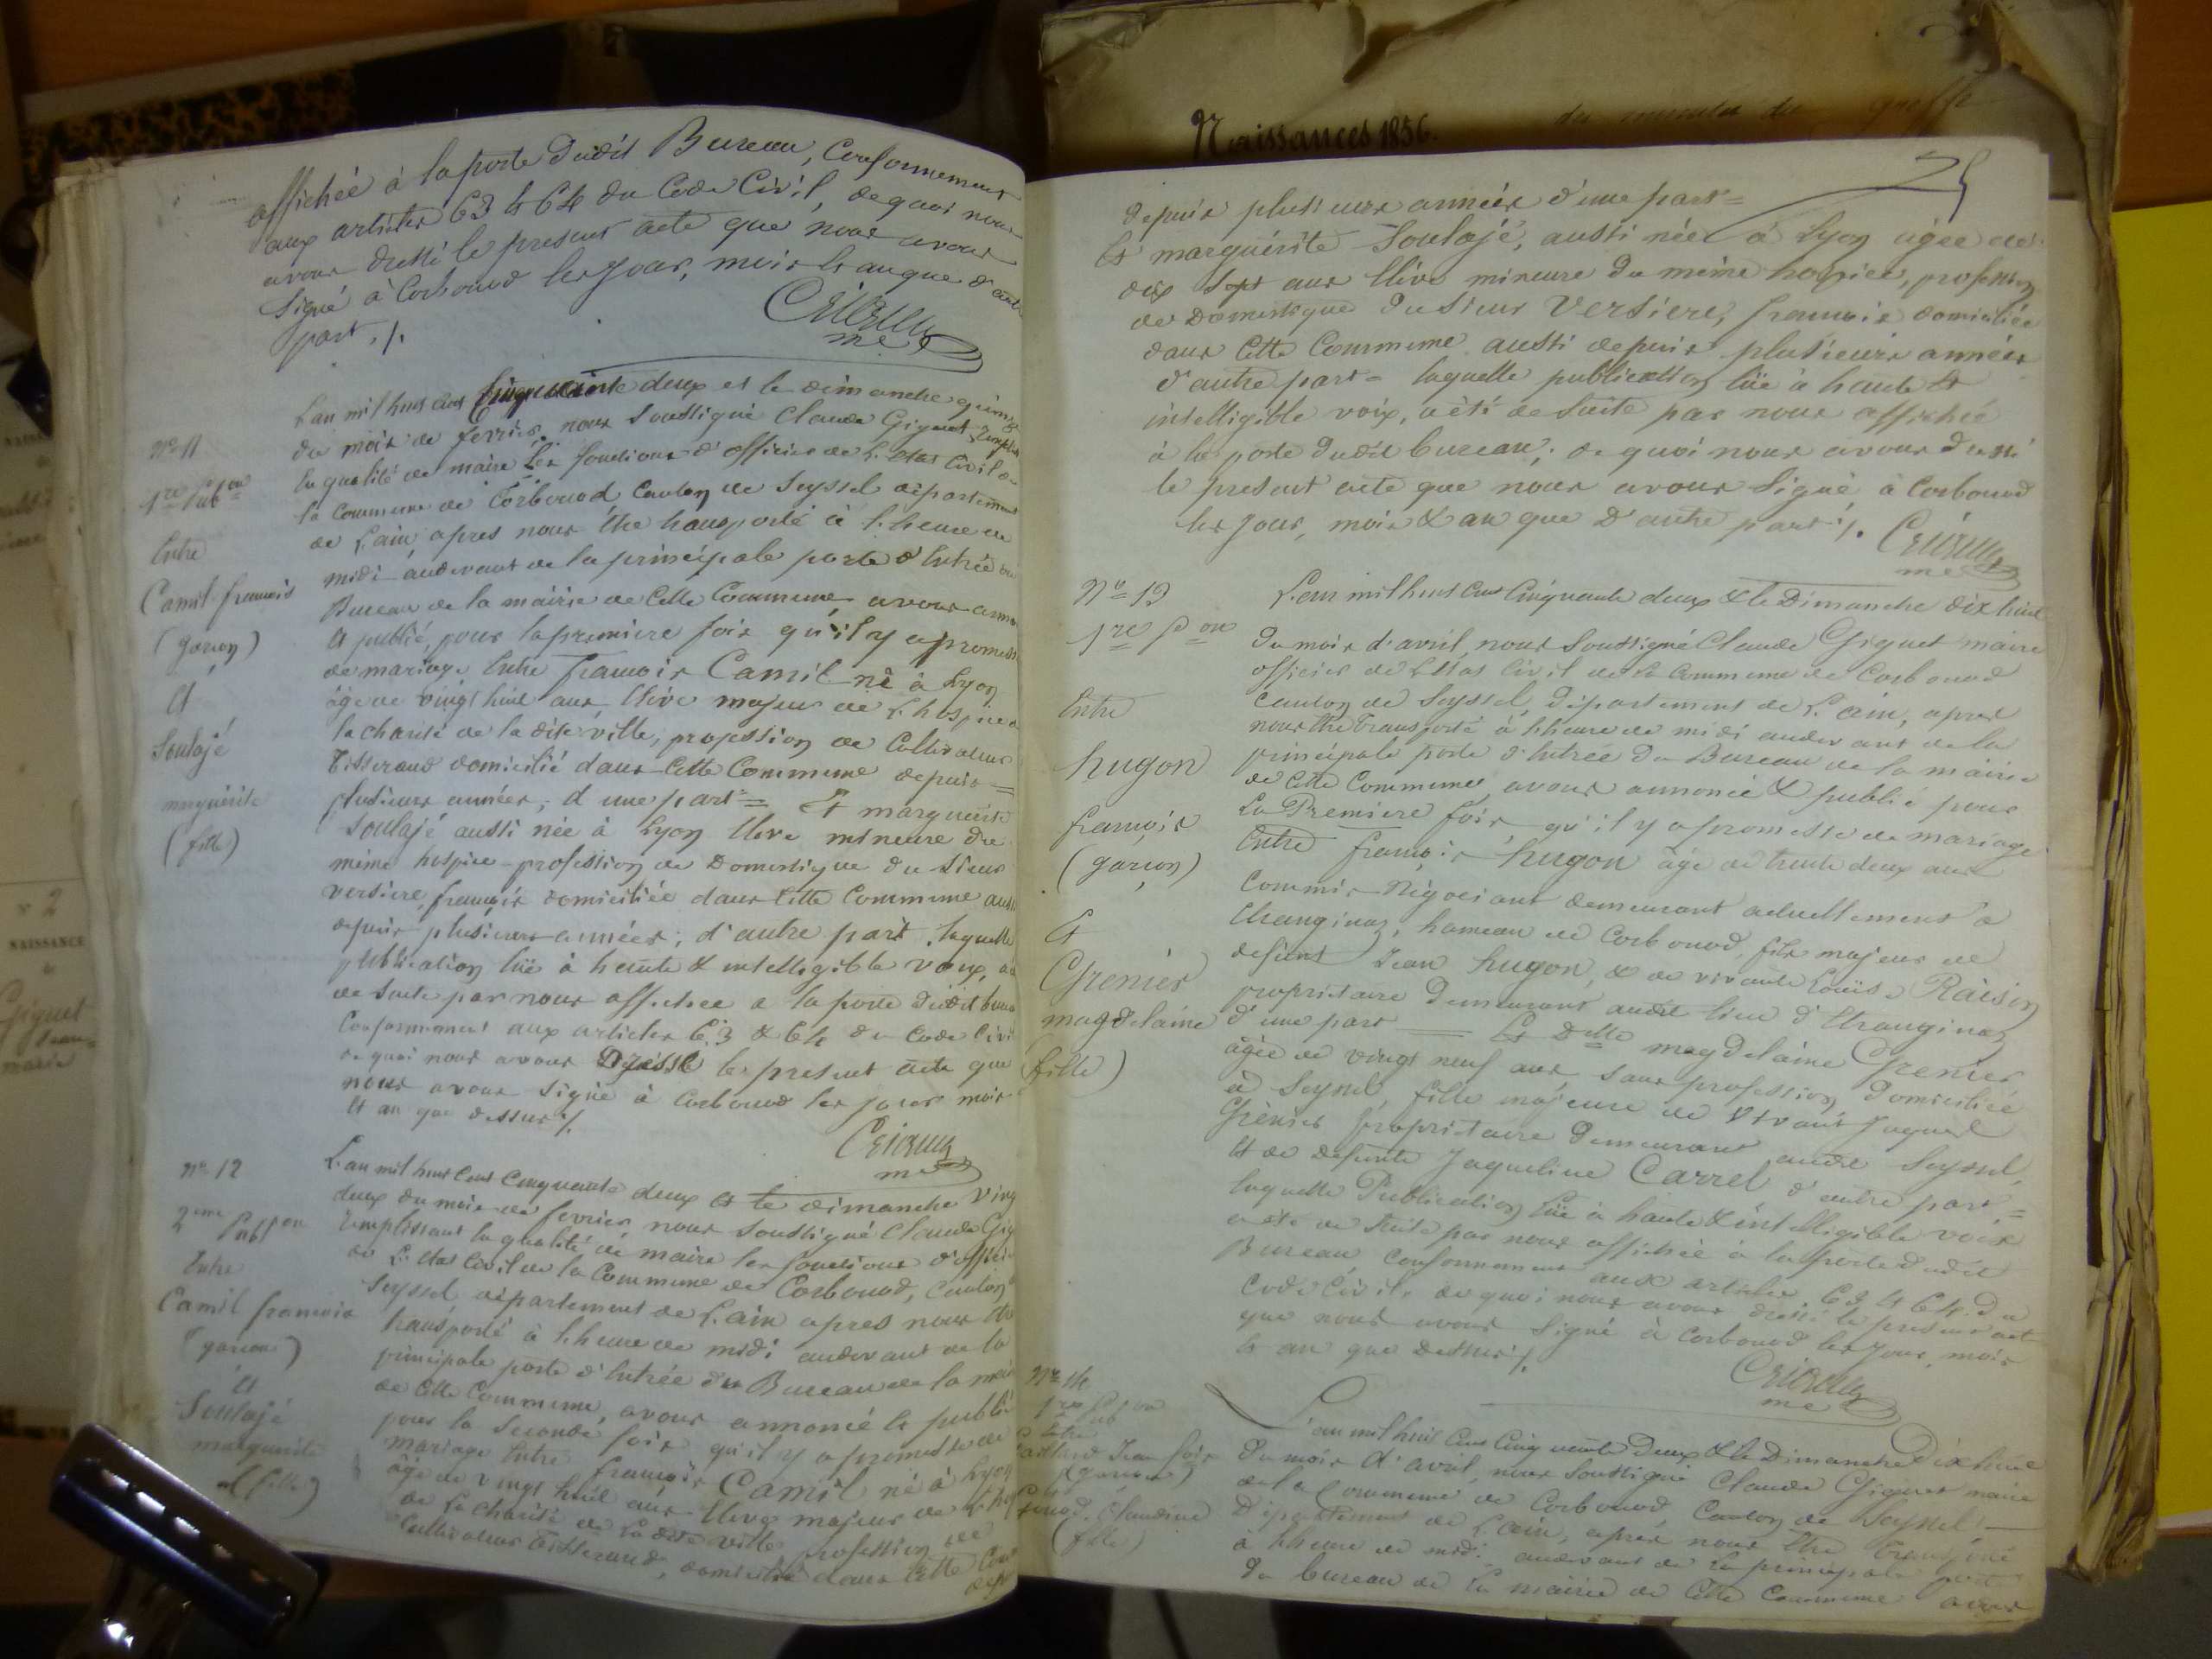 affichée à la porte dudit Bureau, Conformement
aux articles 63 & 64 du Code Civil, de quoi nous
avons dressé le present acte que nous avons
signé à Corbonod les jour, mois & an que d'autre
part ./.
N° 11
1re Pubon
Entre
Camil francois
(garçon)
Et
Soulajé
marguerite
(fille)
L'an mil huit cent Cinquante deux et le dimanche quinze
du mois de fevrier, nous soussigné Claude Giguet remplissant
la qualité de maire les fonctions d'officier de L'Etat Civil de
la Commune de Corbonod Canton de Seyssel département
de L'ain, apres nous être transporté à l'heure de
midi audevant de la principale porte d'Entrée du
Bureau de la mairie de Cette Commune, avons annoncé
Et publié, pour la premiere fois qu'il y a promesse
de mariage Entre francois Camil né à Lyon
âgé de vingt huit ans, Elève majeur de L'hospice de
la charité de la dite ville, profession de Cultivateur
Tisserand domicilié dans Cette Commune depuis =
plusieurs années, d'une part = Et marguerite
Soulajé aussi née à Lyon Eleve mineure du
même hospice profession de Domestique du sieur
versiere, françois domiciliée dans Cette Commune aussi
depuis plusieurs années; d'autre part, laquelle
publication lüe à haute & intelligible voix, a été
de suite par nous affichée a la porte dudit bureau
Conformement aux articles 63 & 64 du Code Civil
de quoi nous avons Dressé le present acte que
nous avons signé à Corbonod les jour mois
Et an que dessus ./.
N° 12
2eme Pubon
Entre
Camil francois
(garçon)
Et
Soulajé
marguerite
(fille)
L'an mil huit Cent Cinquante deux Et le dimanche vingt
deux du mois de fevrier nous soussigné Claude Giguet
remplissant la qualité de maire les fonctions d'officier
de L'Etat Civil de la Commune de Corbonod, Canton
Seyssel département de L'ain apres nous être
transporté à l'heure de midi audevant de la
principale porte d'Entrée du Bureau de la mairie
de Cette Commune, avons annoncé Et publié
pour la Seconde fois qu'il y a promesse de
mariage Entre francois Camil né à Lyon
âgé de vingt huit ans Elève majeur de L'hospice
de La charité de La dite ville profession de
Cultivateur Tisserand, domicilié dans Cette Commune
depuis
Naissances 1856.
25
depuis plusieurs années d'une part =
Et marguérite Soulajé, aussi née à Lyon agée de
dix sept ans Elève mineure du même hospice, profession
de Domestique du sieur Versiere, francois domiciliée
dans Cette Commune aussi depuis plusieurs années
d'autre part = laquelle publication lüe à haute Et
intelligible voix, a été de suite par nous affichée
à la porte dudit bureau; de quoi nous avons dressé
le present acte que nous avons signé à Corbonod
les jour, mois & an que d'autre part ./.
N° 13
1re Pon
Entre
hugon
françois
(garçon)
Et
Grenier
magdelaine
(fille)
L'an mil huit Cent Cinquante deux & le Dimanche dix huit
du mois d'avril, nous soussigné Claude Giguet maire
officier de L'Etat Civil de la Commune de Corbonod
Canton de Seyssel, Département de L'ain, apres
nous être transporté à l'heure de midi audevant de la
principale porte d'Entrée du Bureau de la mairie
de Cette Commune, avons annoncé & publié pour
La Premiere fois, qu'il y a promesse de mariage
Entre françois hugon âgé de trente deux ans
Commis Négociant demeurant actuellement à
Etranginaz, hameau de Corbonod, fils majeur de
defunt Jean hugon, & de vivante Louise Raisin
propriétaire demeurant audit lieu d'Etranginaz
d'une part = Et Delle magdelaine Grenier
âgée de vingt neuf ans sans profession domiciliée
à Seyssel, fille majeure de vivant Jaques
Grenier propriétaire demeurant audit Seyssel,
Et de defunte Jaqueline Carrel d'autre part =
laquelle Publication lüe à haute & intelligible voix
a été de suite par nous affichée à la porte dudit
Bureau, conformement aux articles 63 & 64 du
Code Civil, de quoi nous avons dressé le present acte
que nous avons signé à Corbonod les jour, mois
Et an que Dessus ./.
N° 14
1re Pubon
Entre
Jean
(garçon)
Claudine
(fille)
L'an mil huit Cent Cinquante Deux & le Dimanche Dix huit
du mois d'avril, nous soussigné Claude Giguet maire
de la Commune de Corbonod, Canton de Seyssel
Département de L'ain, apres nous être transporté
à l'heure de midi audevant de la principale porte
du bureau de la mairie de Cette Commune avons